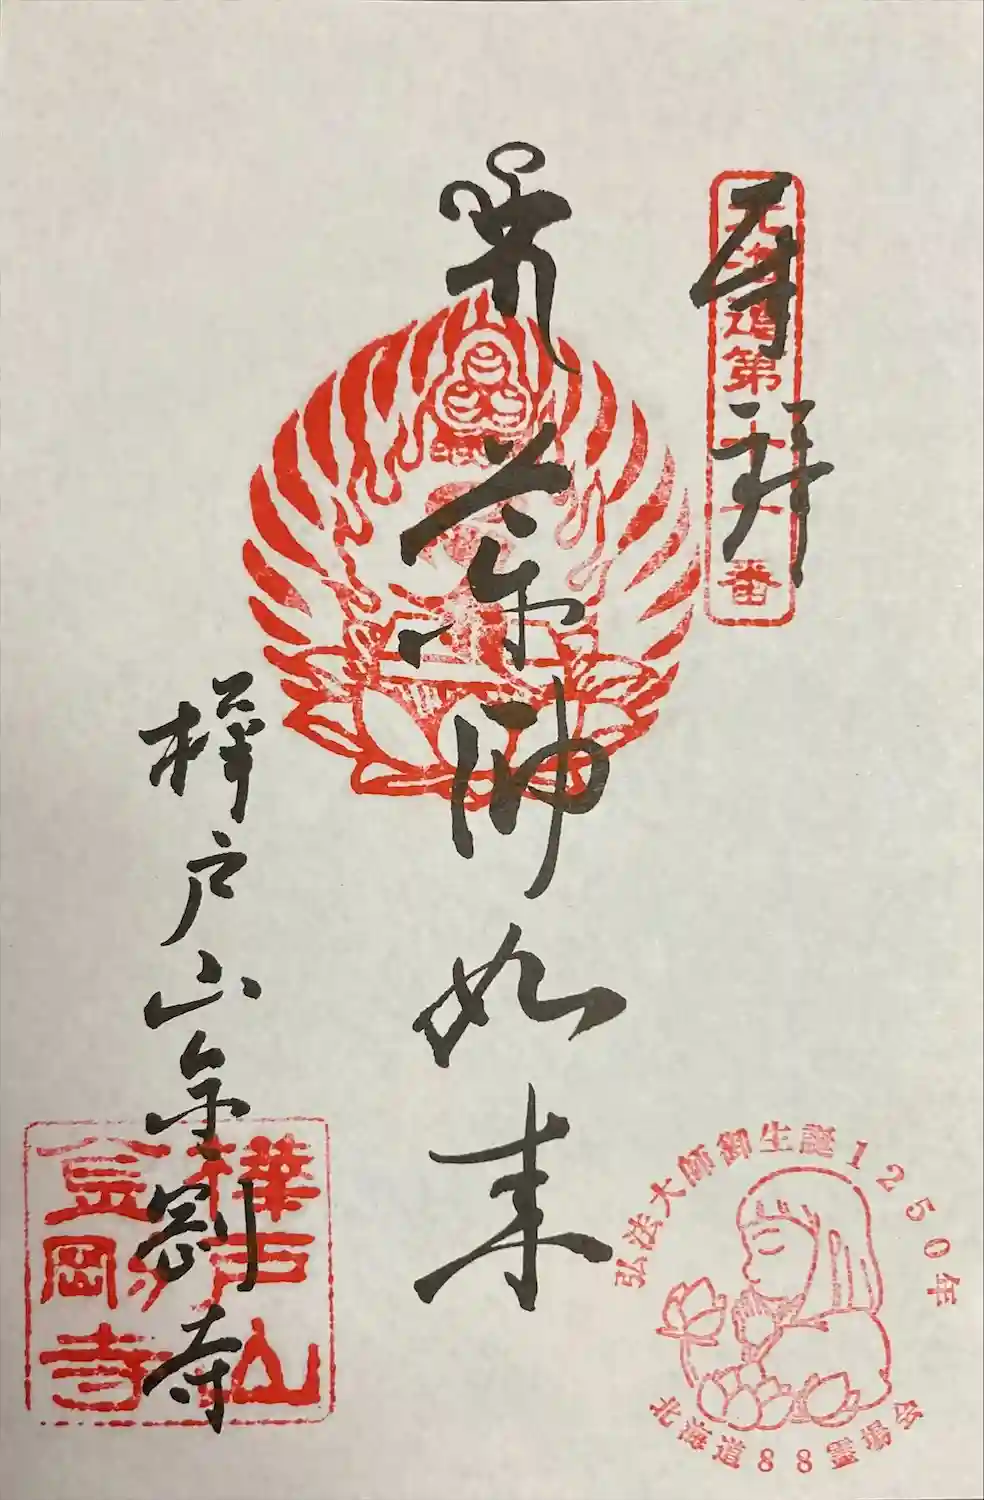 奉拝
北海道第十一番
薬師如来
樺戸山金剛寺
樺戸山
金剛寺
弘法大師御生誕1250年
北海道88霊場会